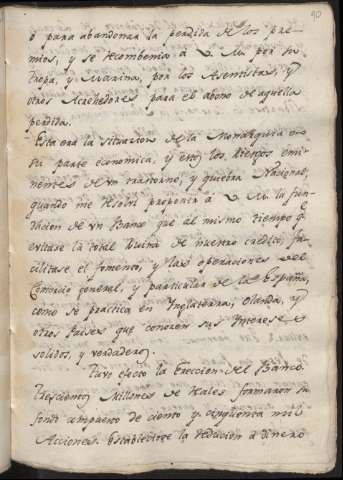 90
ô para abandonar la perdida de los pre-
mios, y se recombenia à V. M. por su
tropa, y Marina, por los Asentistas, y
otros Acrehedores para el abono de aquella
perdida.
Esta era la situacion de la Monarquia en
su parte economica, y estos los riesgos émi-
nentes de vn trastorno, y quiebra Nacional,
quando me resolvi proponer à V. M. la fun-
dacion de vn Banco que al mismo tiempo q.e
evitase la total ruina de nuestro credito, fa-
cilitase el fomento, y las operaciones del
Comercio general, y particular de la España,
como se practica en Inglaterra, Olanda, y
otros Paises que conocen sus Intereses
solidos, y verdaderos.
Tuvo efecto la Ereccion del Banco.
Trescientos Millones de Reales formaron su
fondo compuesto de ciento y cinquenta mil
Acciones. Establecióse la reducion a dinero